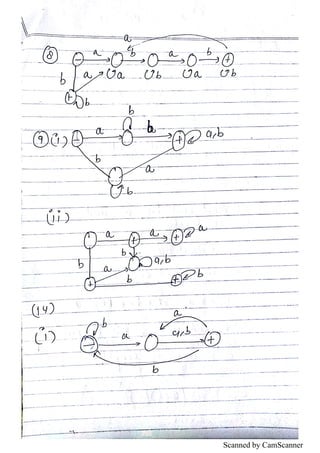 a
(8) - a b a b +
b a a b a b
+ b
b
(9) (i) - a b + a,b
b a
b
(ii)
a + a + a
b b a a,b
+ b + b
(14)
a
(i) b - a a,b +
b
Scanned by CamScanner